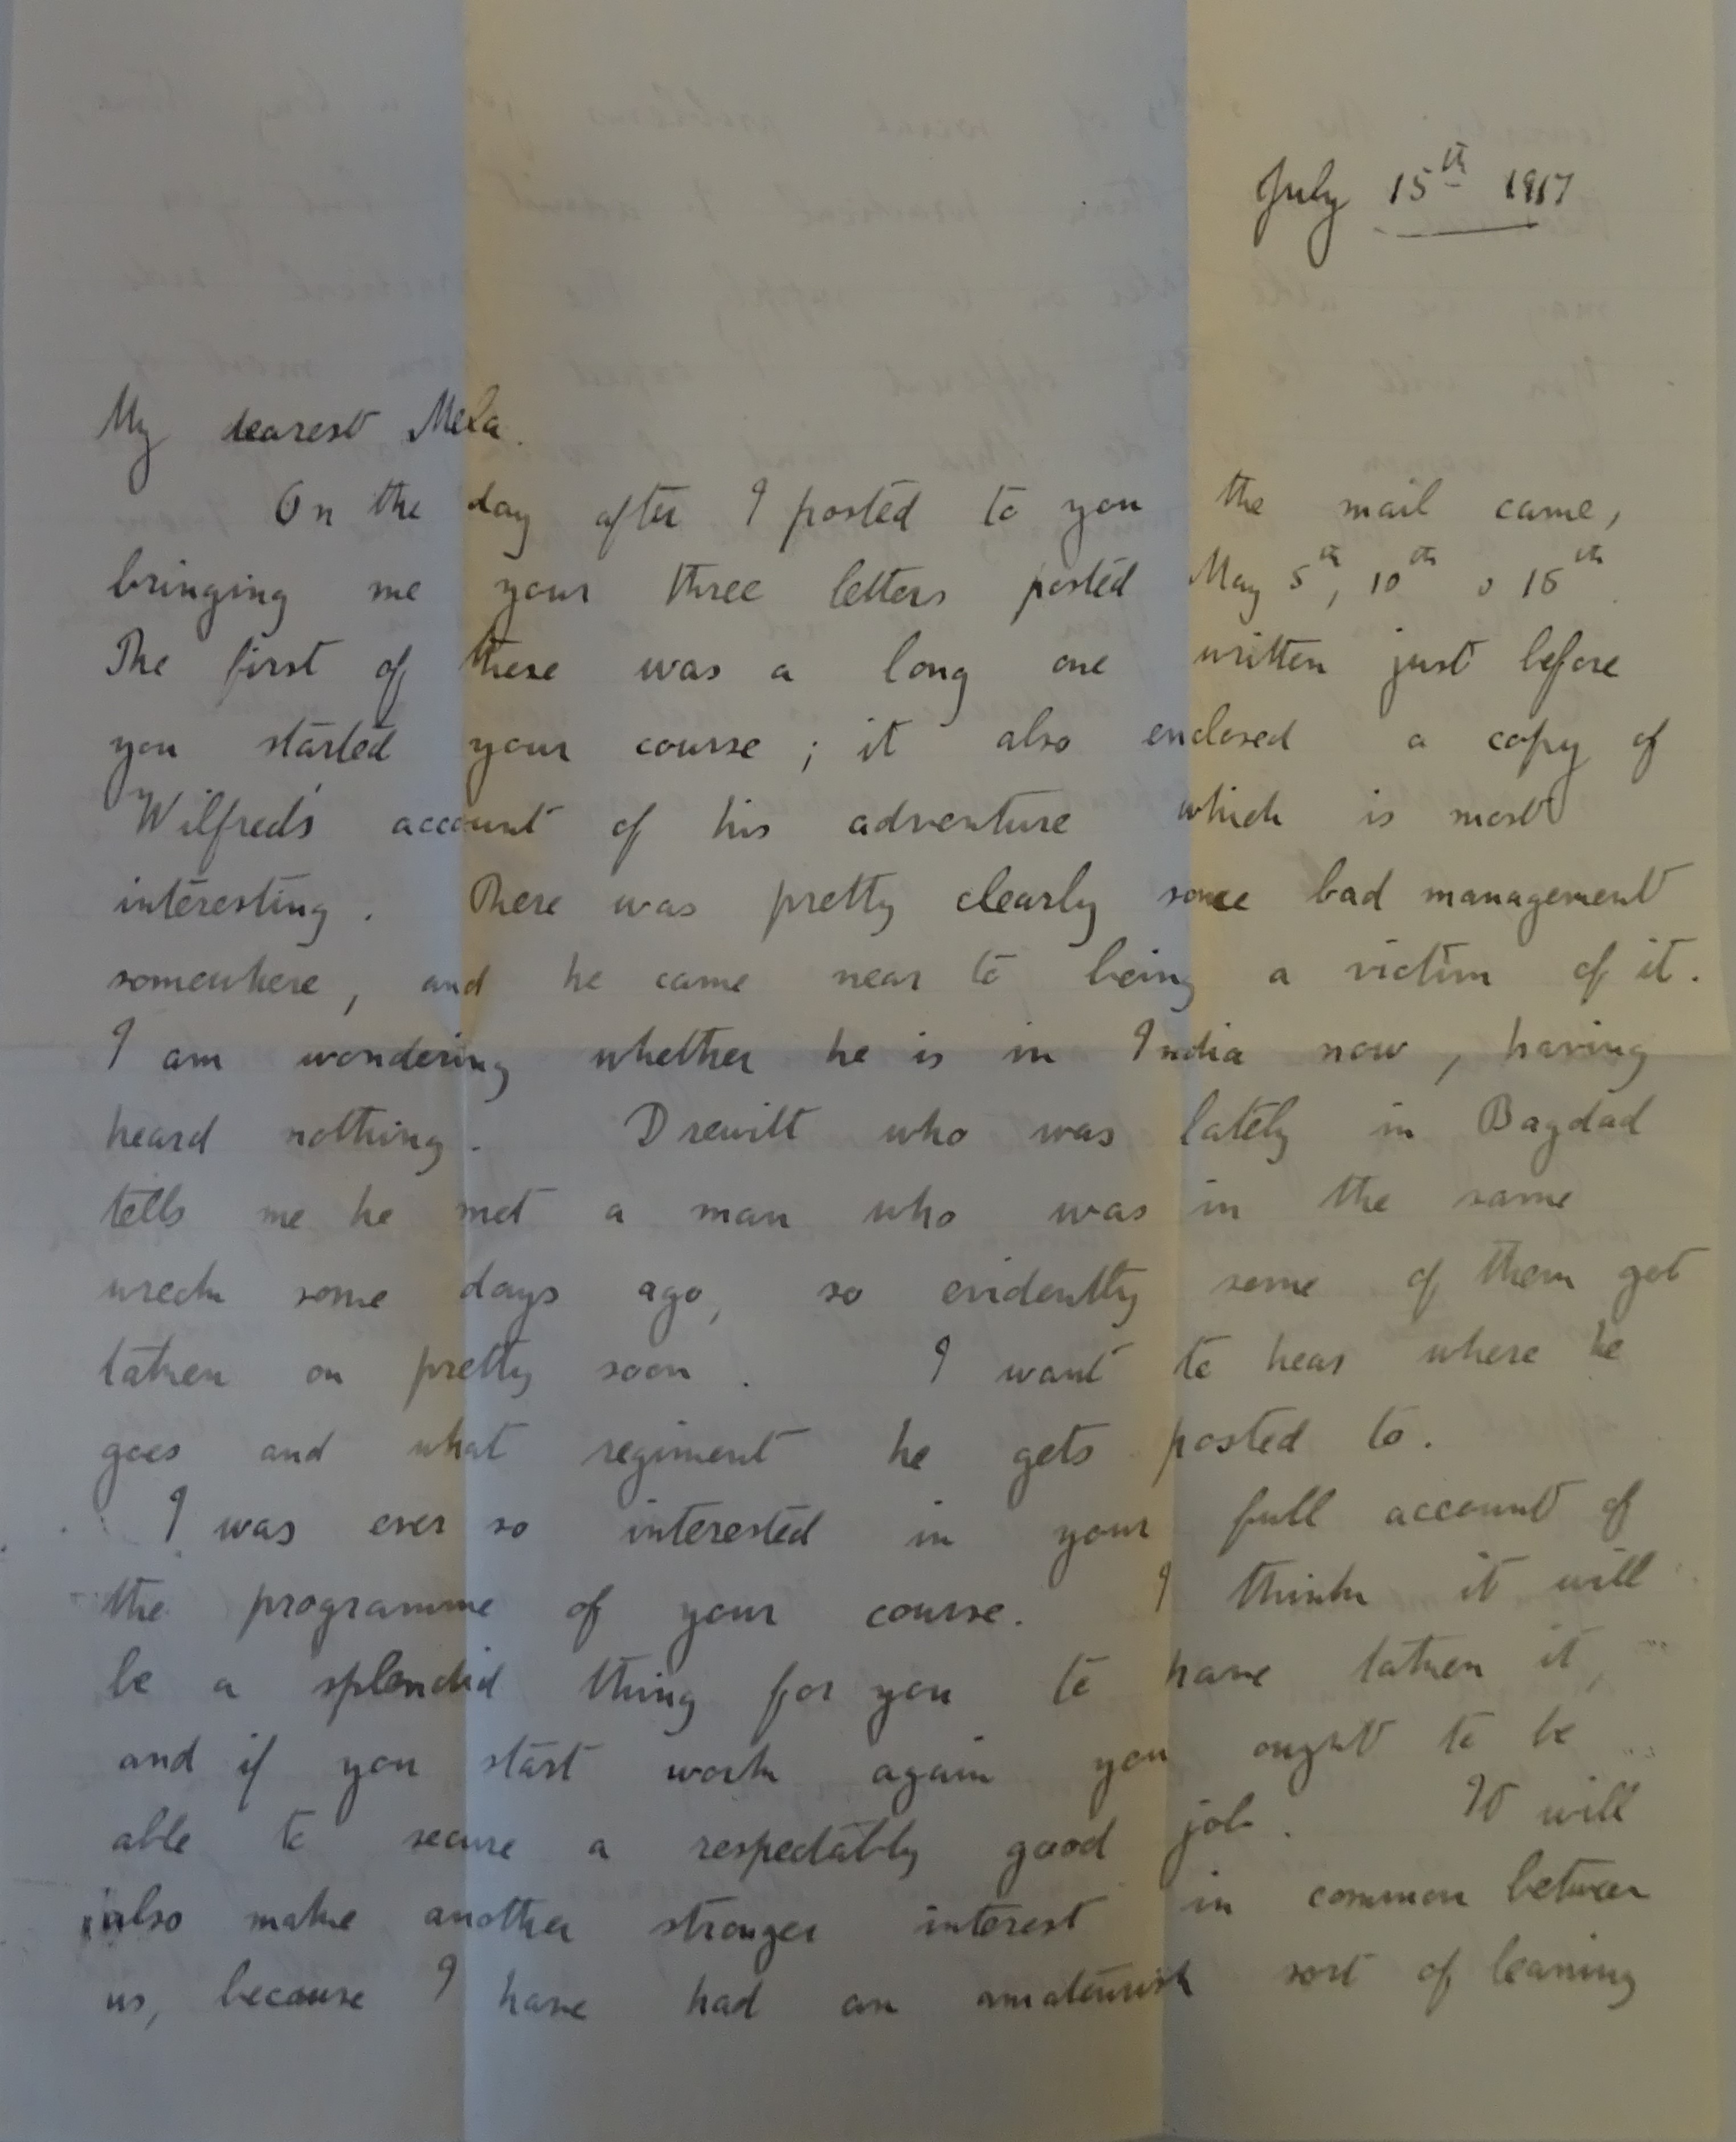 July 15th 1917
My dearest Mela.
On the day after I posted to you the mail came,
bringing me your three letters posted May 5th, 10th & 15th.
The first of these was a long one written just before
you started your course; it also enclosed a copy of
Wilfred's account of his adventure which is most
interesting. There was pretty clearly some bad management
somewhere, and he came near to being a victim of it.
I am wondering whether he is in India now, having
heard nothing. Drewitt who was lately in Bagdad
tells me he met a man who was in the same
wreck some days ago, so evidently some of them got
taken on pretty soon. I want to hear where he
goes and what regiment he gets posted to.
I was ever so interested in your full account of
the programme of your course. I think it will
be a splendid thing for you to have taken it,
and if you start work again you ought to be
able to secure a respectably good job. It will
also make another stronger interest in common between
us, because I have had an amateurish sort of leaning